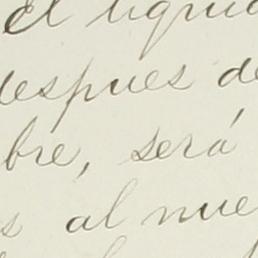 el liquid
despues de
bre, será
s al nue